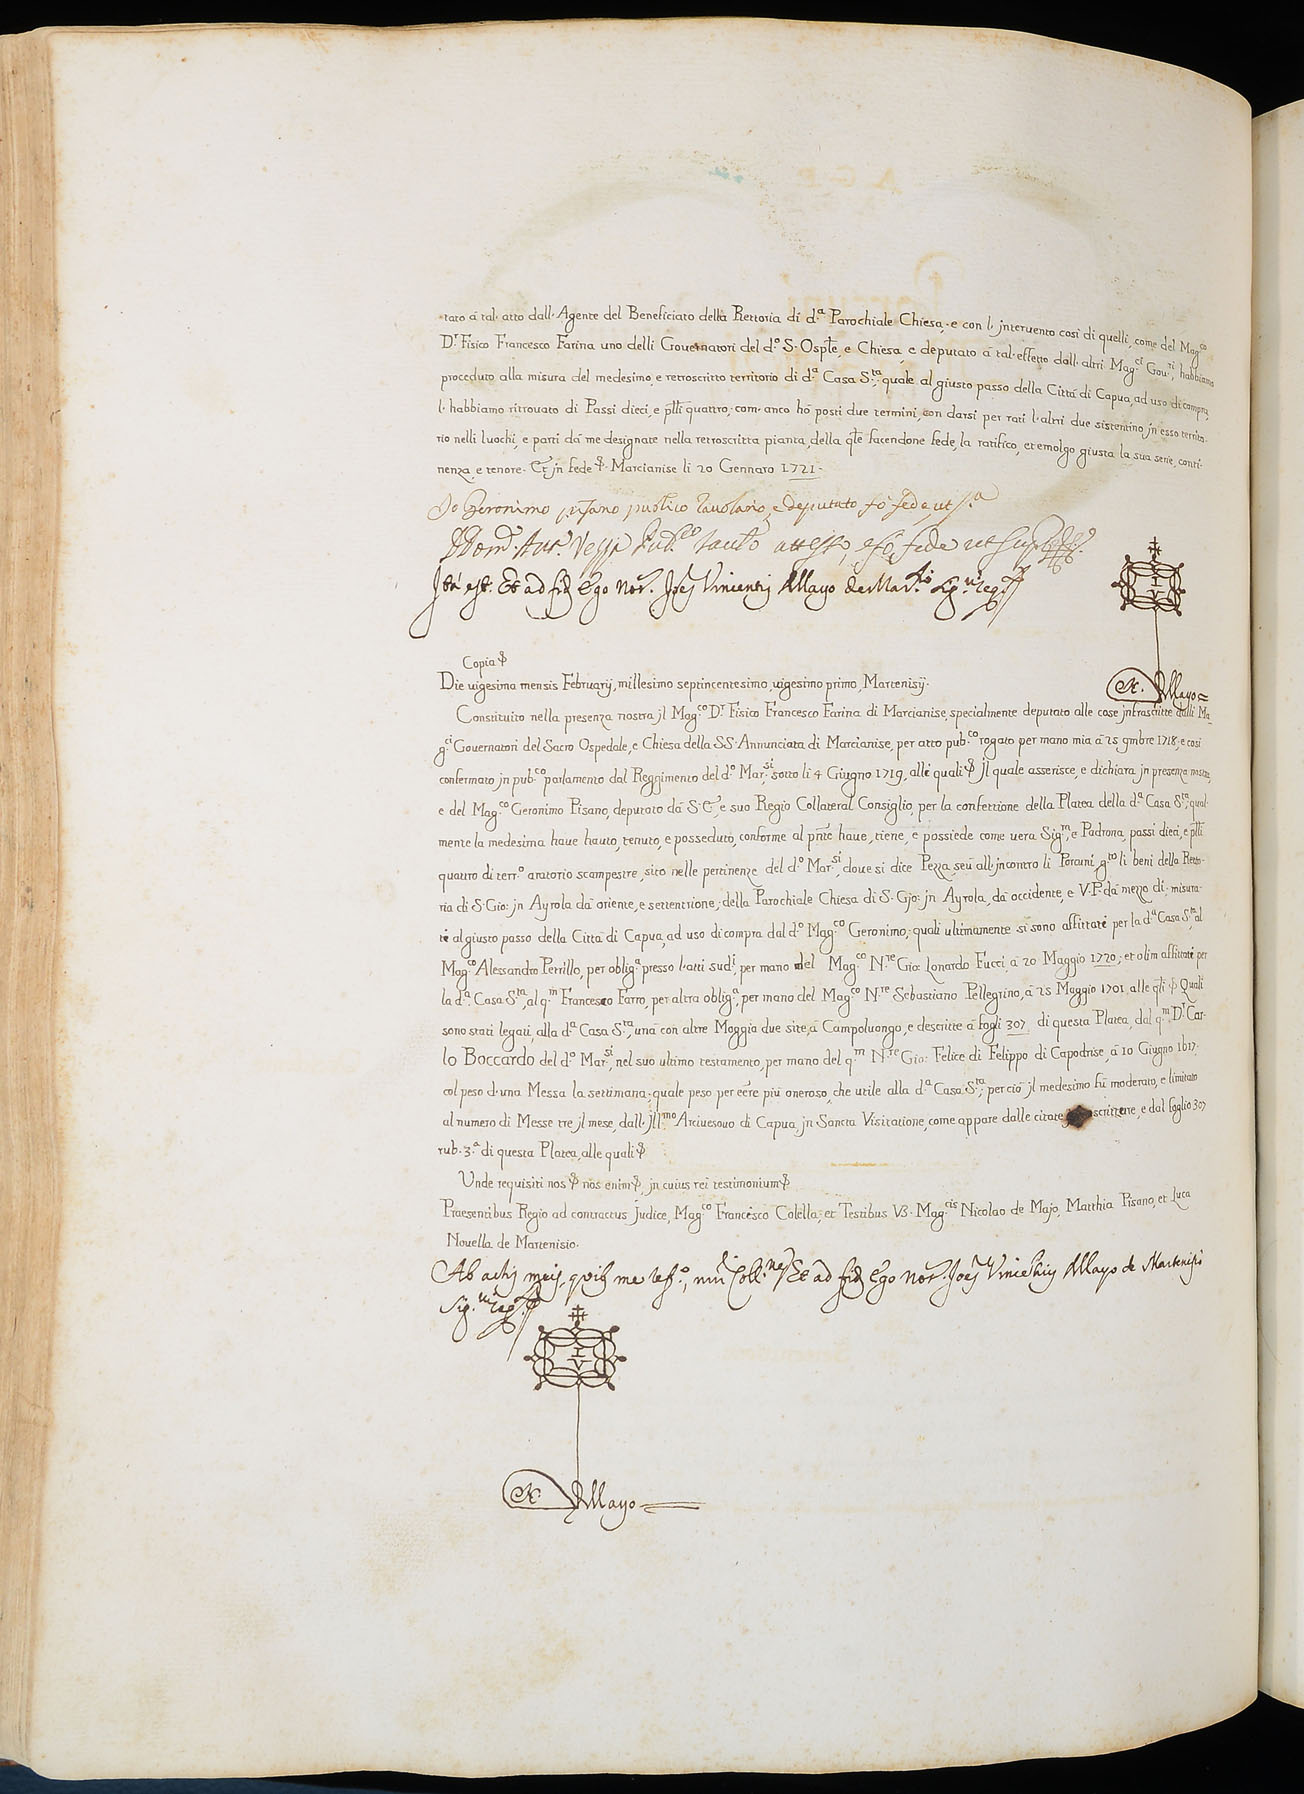 tato á tal' atto dall'Agente del Beneficiato della Rettoria di d.ª Parochiale Chiesa, e con l'jnteruento cosi di quelli, come del Mag.co
D.r Fisico Francesco Farina uno delli Gouernatori del d.º S. Osp̅le, e Chiesa, e deputato á tal' effetto dall'altri Mag.ci Gou.ri, habbiamo
proceduto alla misura del medesimo, e retroscritto territorio di d.ª Casa S.ta, quale al giusto passo della Cittá di Capua, ad uso di compra,
l'habbiamo ritrouato di Passi dieci, e p̅ssi quattro, com'anco hó posti due termini, con darsi per rati l'altri due sistentino jn esso territo-
rio nelli luochi, e parti dá me designate nella retroscritta pianta, della q̅le facendone fede, la ratifico, et emolgo giusta la sua serie, conti-
nenza, e tenore. Et jn fede &. Marcianise li 20 Gennaro 1721.
Io Geronimo pisano publico tauolario, e deputato fò fede, ut s.ª
Ita est. Et ad fid. Ego Not. Joes Vincentius Mayo de Mar.sio sig.ui reg.
I
V
N. Mayo
Copia &
Die uigesima mensis Februarij, millesimo septincentesimo, uigesimo primo, Martenisij.
Constituito nella presenza nostra jl Mag.co D.r Fisico Francesco Farina di Marcianise, specialmente deputato alle cose jnfrascritte dalli Ma-
g.ci Gouernatori del Sacro Ospedale, e Chiesa della SS. Annunciata di Marcianise, per atto pub.co rogato per mano mia á 25 9mbre 1718, e cosi
confermato jn pub.co parlamento dal Reggimento del d.º Mar.si, sotto li 4 Giugno 1719, alli quali & jl quale asserisce, e dichiara jn presenza nostra,
e del Mag.co Geronimo Pisano, deputato dá S. E., e suo Regio Collateral Consiglio, per la confettione della Platea della d.ª Casa S.ta, qual-
mente la medesima haue hauto, tenuto, e posseduto, conforme al pn̅te haue, tiene, e possiede come uera Sig.ra, e Padrona, passi dieci, e p̅ssi
quattro di terr.º aratorio scampestre, sito nelle pertinenze del d.º Mar.si, doue si dice Pezza, seú all'jncontro li Porcini, g.to li beni della Retto-
ria di S. Gio: jn Ayrola dá oriente, e settentrione, della Parochiale Chiesa di S. Gjo: jn Ayrola, dá occidente, e V. P. dá mezzo dí, misura-
ti al giusto passo della Cittá di Capua, ad uso di compra dal d.º Mag.co Geronimo, quali ultimamente si sono affittati per la d.ª Casa S.ta al
Mag.co Alessandro Petrillo, per oblig.ª presso l'atti sud.i, per mano del Mag.co N.re Gio: Lonardo Fucci, á 20 Maggio 1720; et olim affittati per
la d.ª Casa S.ta, al q.m Francesco Farro, per altra oblig.ª, per mano del Mag.co N.re Sebastiano Pellegrino, á 25 Maggio 1701, alle q̅li & Quali
sono stati legati, alla d.ª Casa S.ta, uná con altre Moggia due site, á Campoluongo, e descritte á fogli 307 di questa Platea, dal q.m D.r Car-
lo Boccardo del d.º Mar.si, nel suo ultimo testamento, per mano del q.m N.re Gio: Felice di Felippo di Capodrise, á 10 Giugno 1617,
col peso d'una Messa la settimana, quale peso per eēre piú oneroso, che utile alla d.ª Casa S.ta, perció jl medesimo fú moderato, e limitato
al numero di Messe tre jl mese, dall'Jll.mo Arciuesouo di Capua, jn Sancta Visitatione, come appare dalle citate scritture, e dal foglio 307
rub. 3.ª di questa Platea, alle quali &
Unde requisiti nos & nos enim &, jn cuius rei testimonium &
Praesentibus Regio ad contractus Judice, Mag.co Francisco Colella, et Testibus V3. Mag.cis Nicolao de Majo, Matthia Pisano, et Luca
Nouella de Martenisio.
Ab actis meis, Et ad fid. Ego Not. Joes Vincentius Mayo de Martenisio
Sig.ui reg.
I
V
N. Mayo